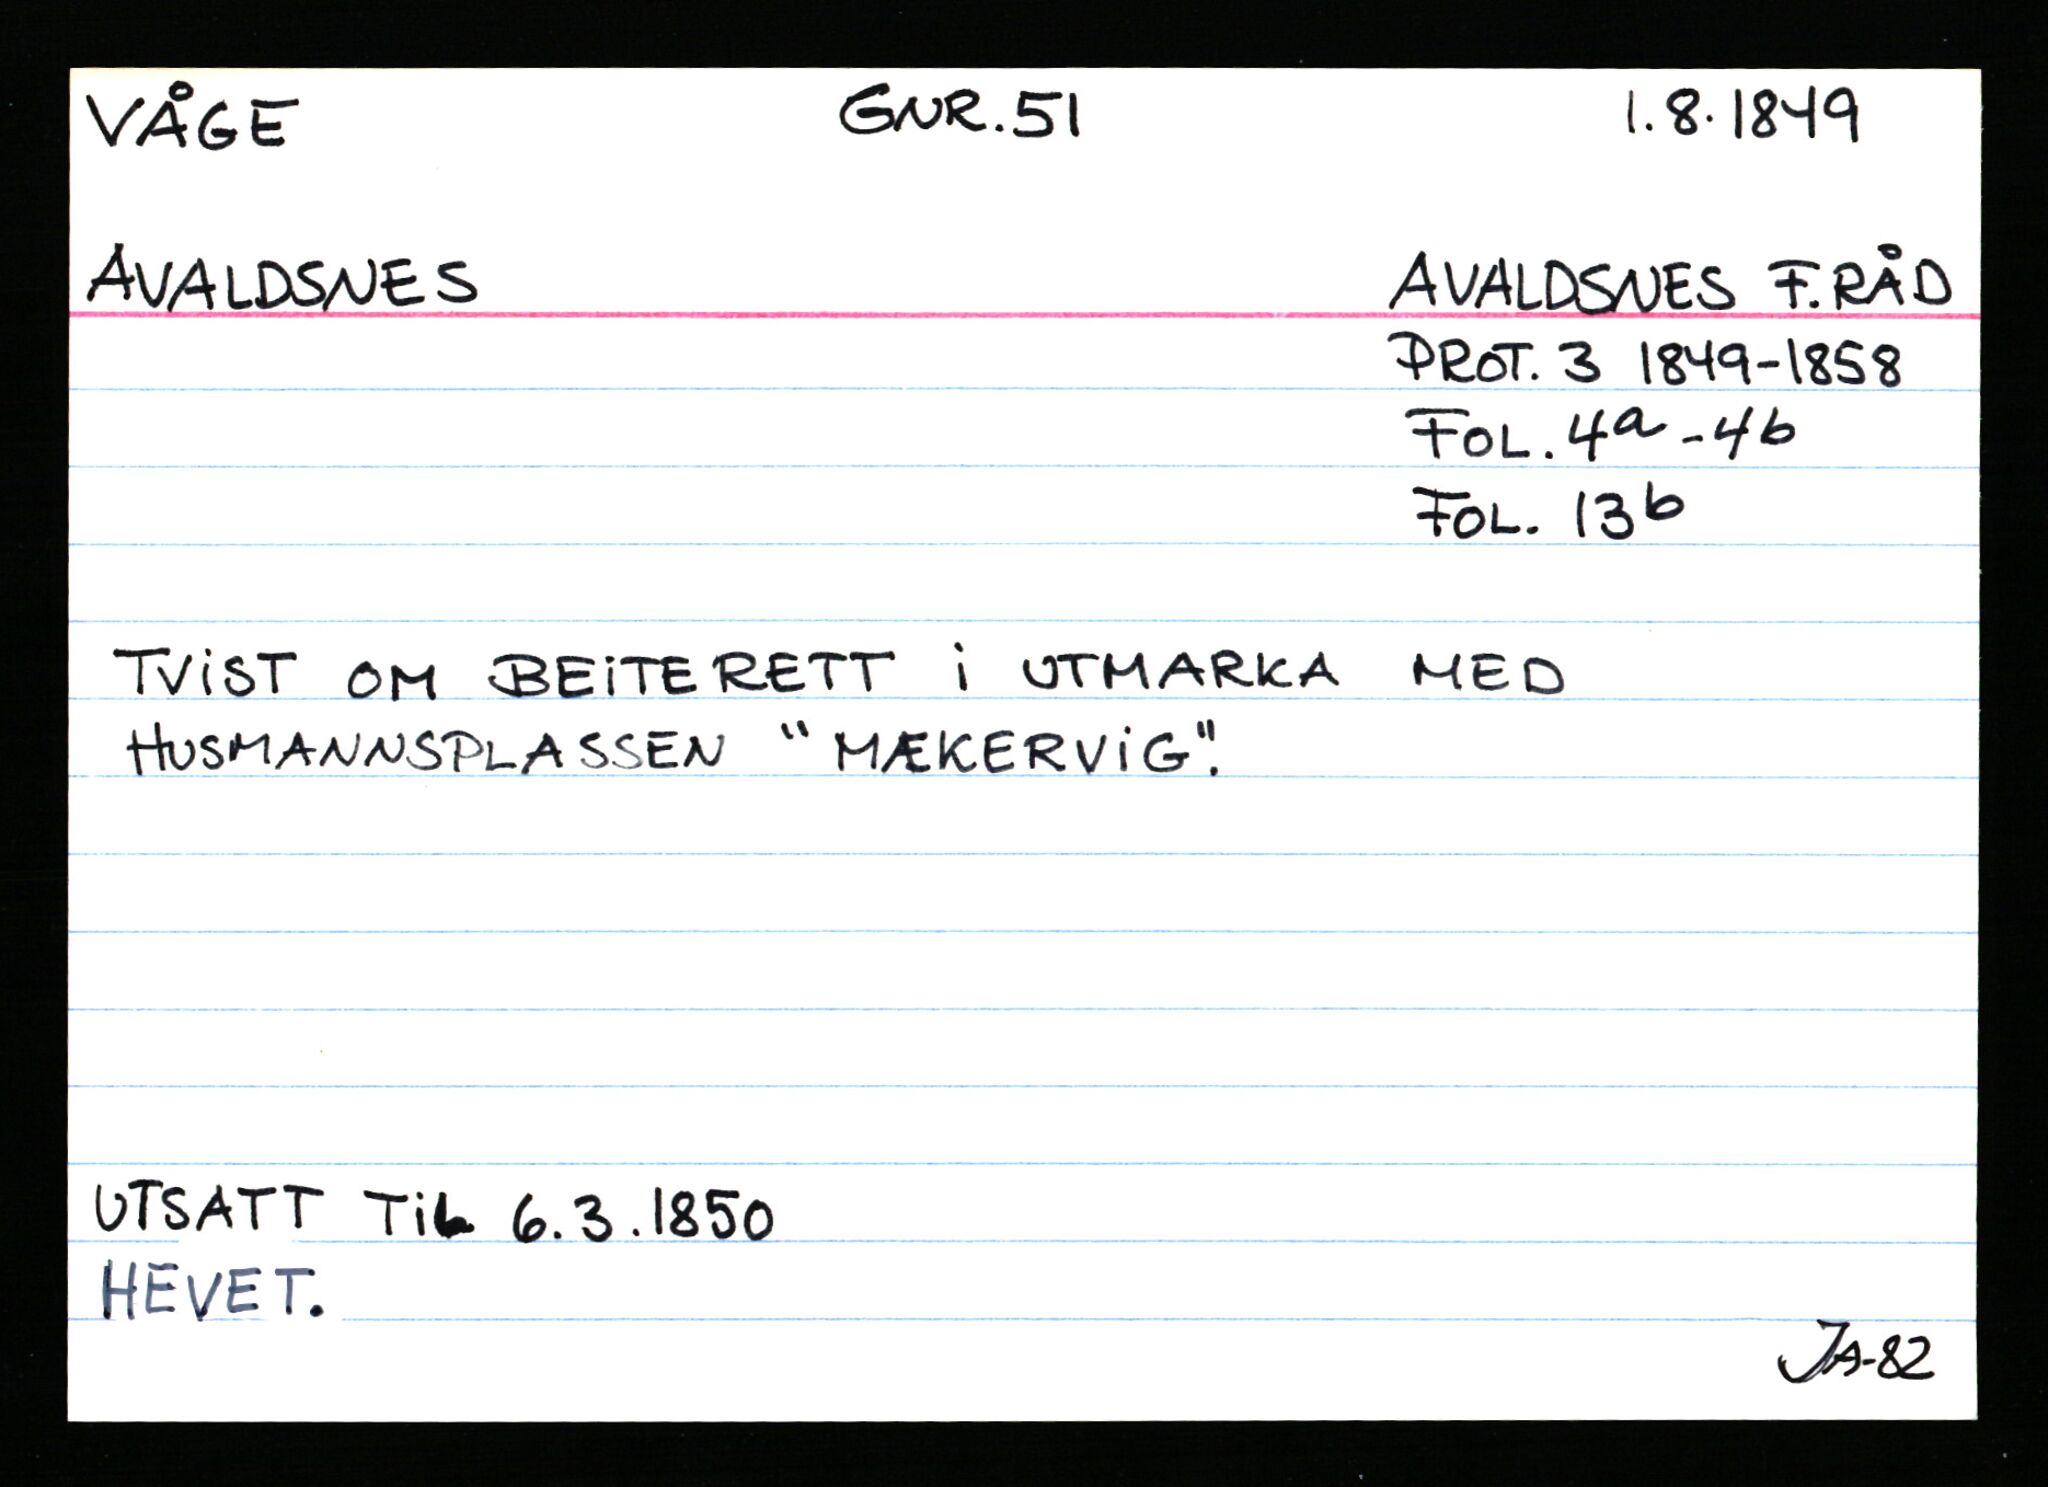 VÅGE GNR. 51 1.8.1849
AVALDSNES AVALDSNES F.RÅD
PROT. 3 1849-1858
FOL. 4a - 4b
FOL. 13b
TViST OM BEiTERETT i UTMARKA MED
HUSMANNSPLASSEN "MÆKERViG".
UTSATT TiL 6.3.1850
HEVET.
JA-82